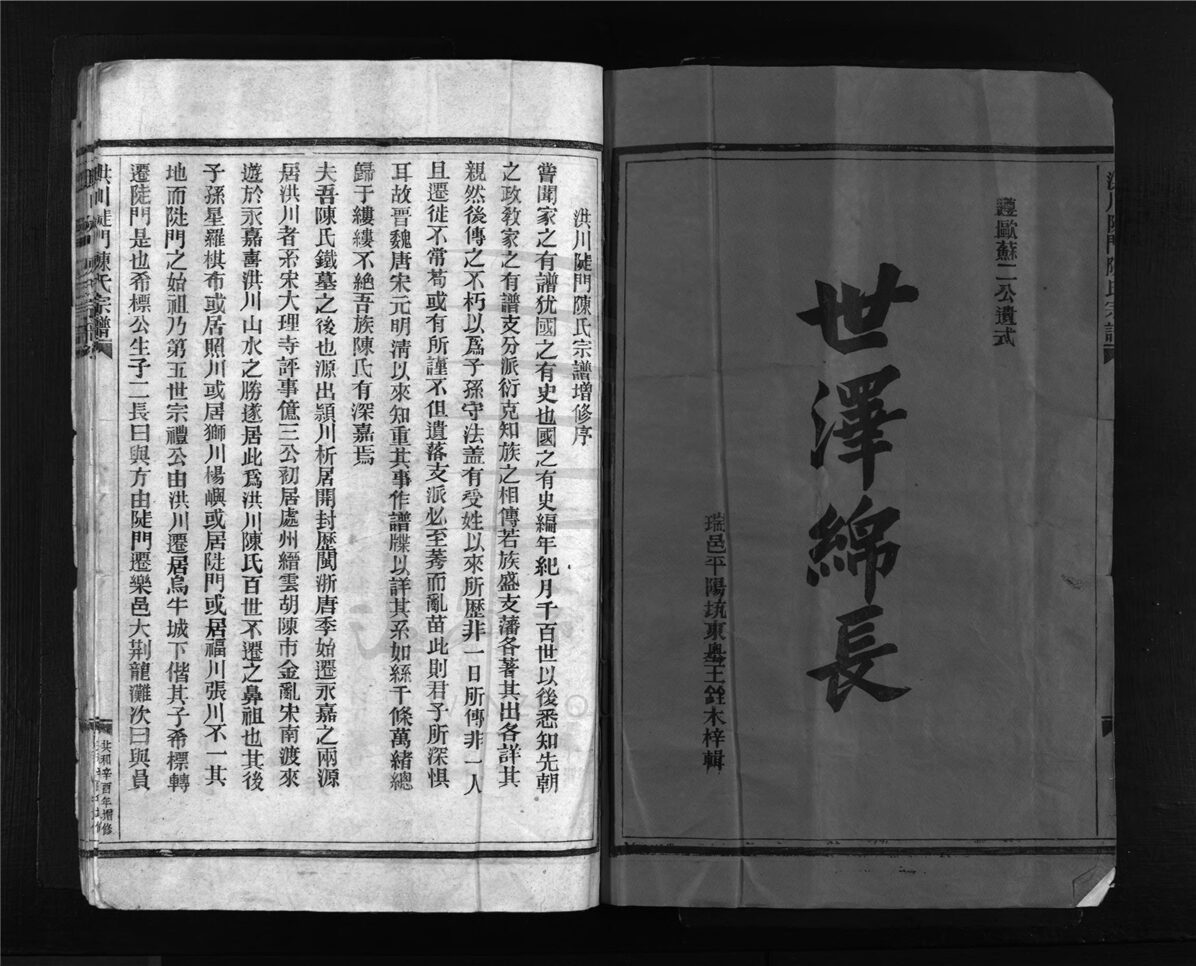 洪川陡門陳氏宗譜
遵歐蘇二公遺式
世澤綿長
瑞邑平陽坑東輿王銓木梓輯
洪川陡門陳氏宗譜增修序
嘗聞家之有譜犹國之有史也國之有史編年紀月千百世以後悉知先朝
之政敎家之有譜支分派衍克知族之相傳若族盛支藩各著其出各詳其
親然後傳之不朽以爲子孫守法盖有受姓以來所歷非一日所傳非一人
且遷徙不常苟或有所謹不但遺落支派必至莠而亂苗此則君子所深惧
耳故晋魏唐宋元明淸以來知重其事作譜牒以詳其系如絲千條萬緒總
歸于縷縷不絕吾族陳氏有深嘉焉
夫吾陳氏鐵墓之後也源出頴川析居開封歷閩浙唐季始遷永嘉之兩源
居洪川者系宋大理寺評事億三公初居處州縉雲胡陳市金亂宋南渡來
遊於永嘉喜洪川山水之勝遂居此爲洪川陳氏百世不遷之鼻祖也其後
子孫星羅棋布或居照川或居獅川楊嶼或居陡門或居福川張川不一其
地而陡門之始祖乃第五世宗禮公由洪川遷居烏牛城下偕其子希標轉
遷陡門是也希標公生子二長曰與方由陡門遷樂邑大荆龍灘次曰與員
洪川陡門陳氏宗譜
共和辛酉年增修